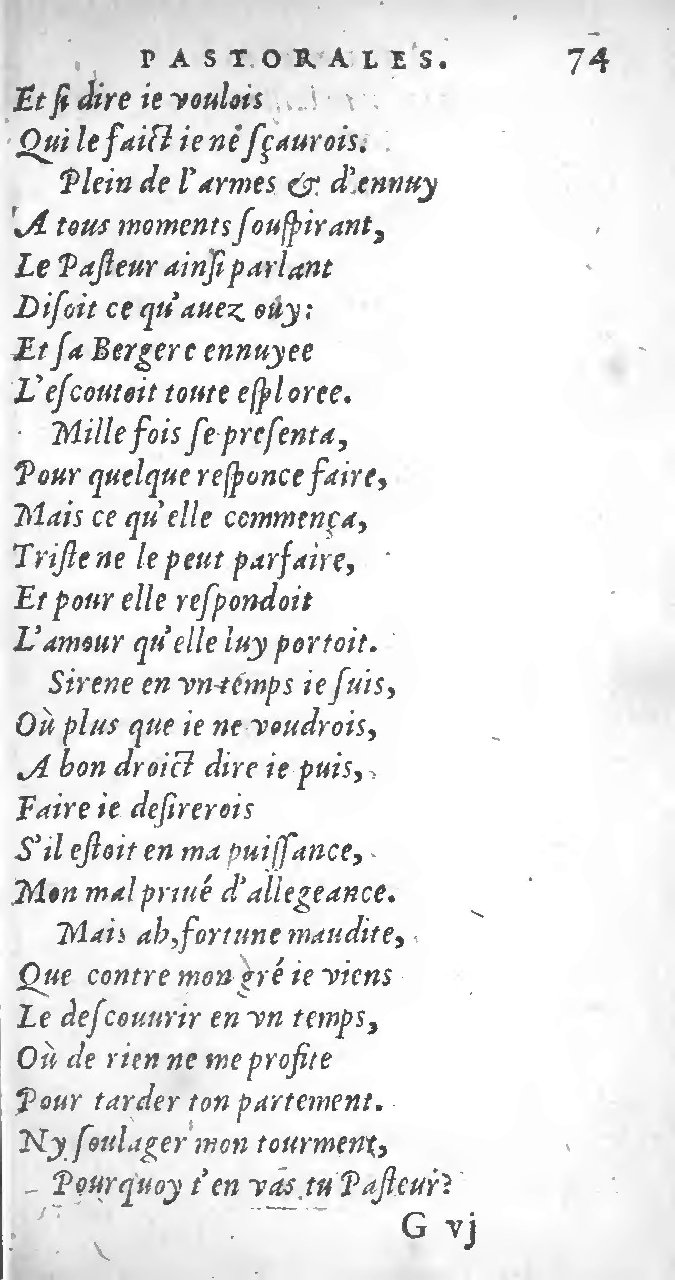 PASTORALES. 74
Et ſi dire ie voulois
Qui le faict ie ne ſçaurois.
Plein de l'armes & d'ennuy
A tous moments ſouſpirant,
Le Paſteur ainſi parlant
Diſoit ce qu'auez ouy:
Et ſa Bergere ennuyee
L'eſcoutoit toute eſploree.
Mille fois ſe preſenta,
Pour quelque reſponce faire,
Mais ce qu'elle commença,
Triſte ne le peut parfaire,
Et pour elle reſpondoit
L'amour qu'elle luy portoit.
Sirene en vn témps ie ſuis,
Où plus que ie ne voudrois,
A bon droict dire ie puis,
Faire ie deſirerois
S'il eſtoit en ma puiſſance,
Mon mal priué d'allegeance.
Mais ah, fortune maudite,
Que contre mon gré ie viens
Le deſcouurir en vn temps,
Où de rien ne me profite
Pour tarder ton partement.
Ny ſoulager mon tourment,
Pourquoy t'en vas tu Paſteur?
G vj